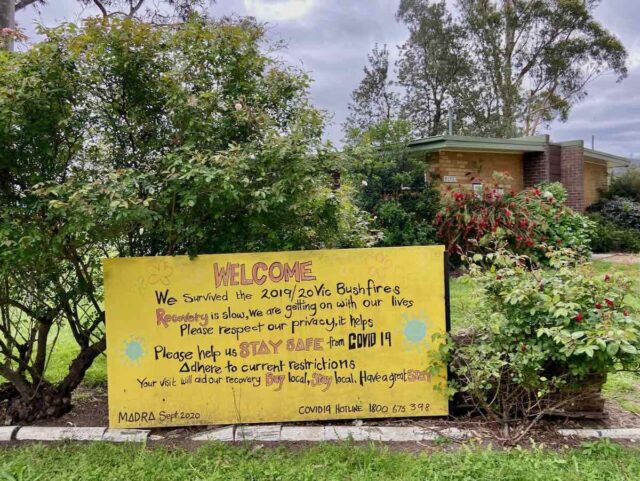 WELCOME
We Survived the 2019/20 Vic Bushfires
Recovery is slow, we are getting on with our lives
Please respect our privacy, it helps
Please help us STAY SAFE from COVID 19
Adhere to current restrictions
Your visit will aid our recovery Buy local, Stay local. Have a great Stay
MADRA Sept 2020
COVID19 HOTLINE 1800 675 398